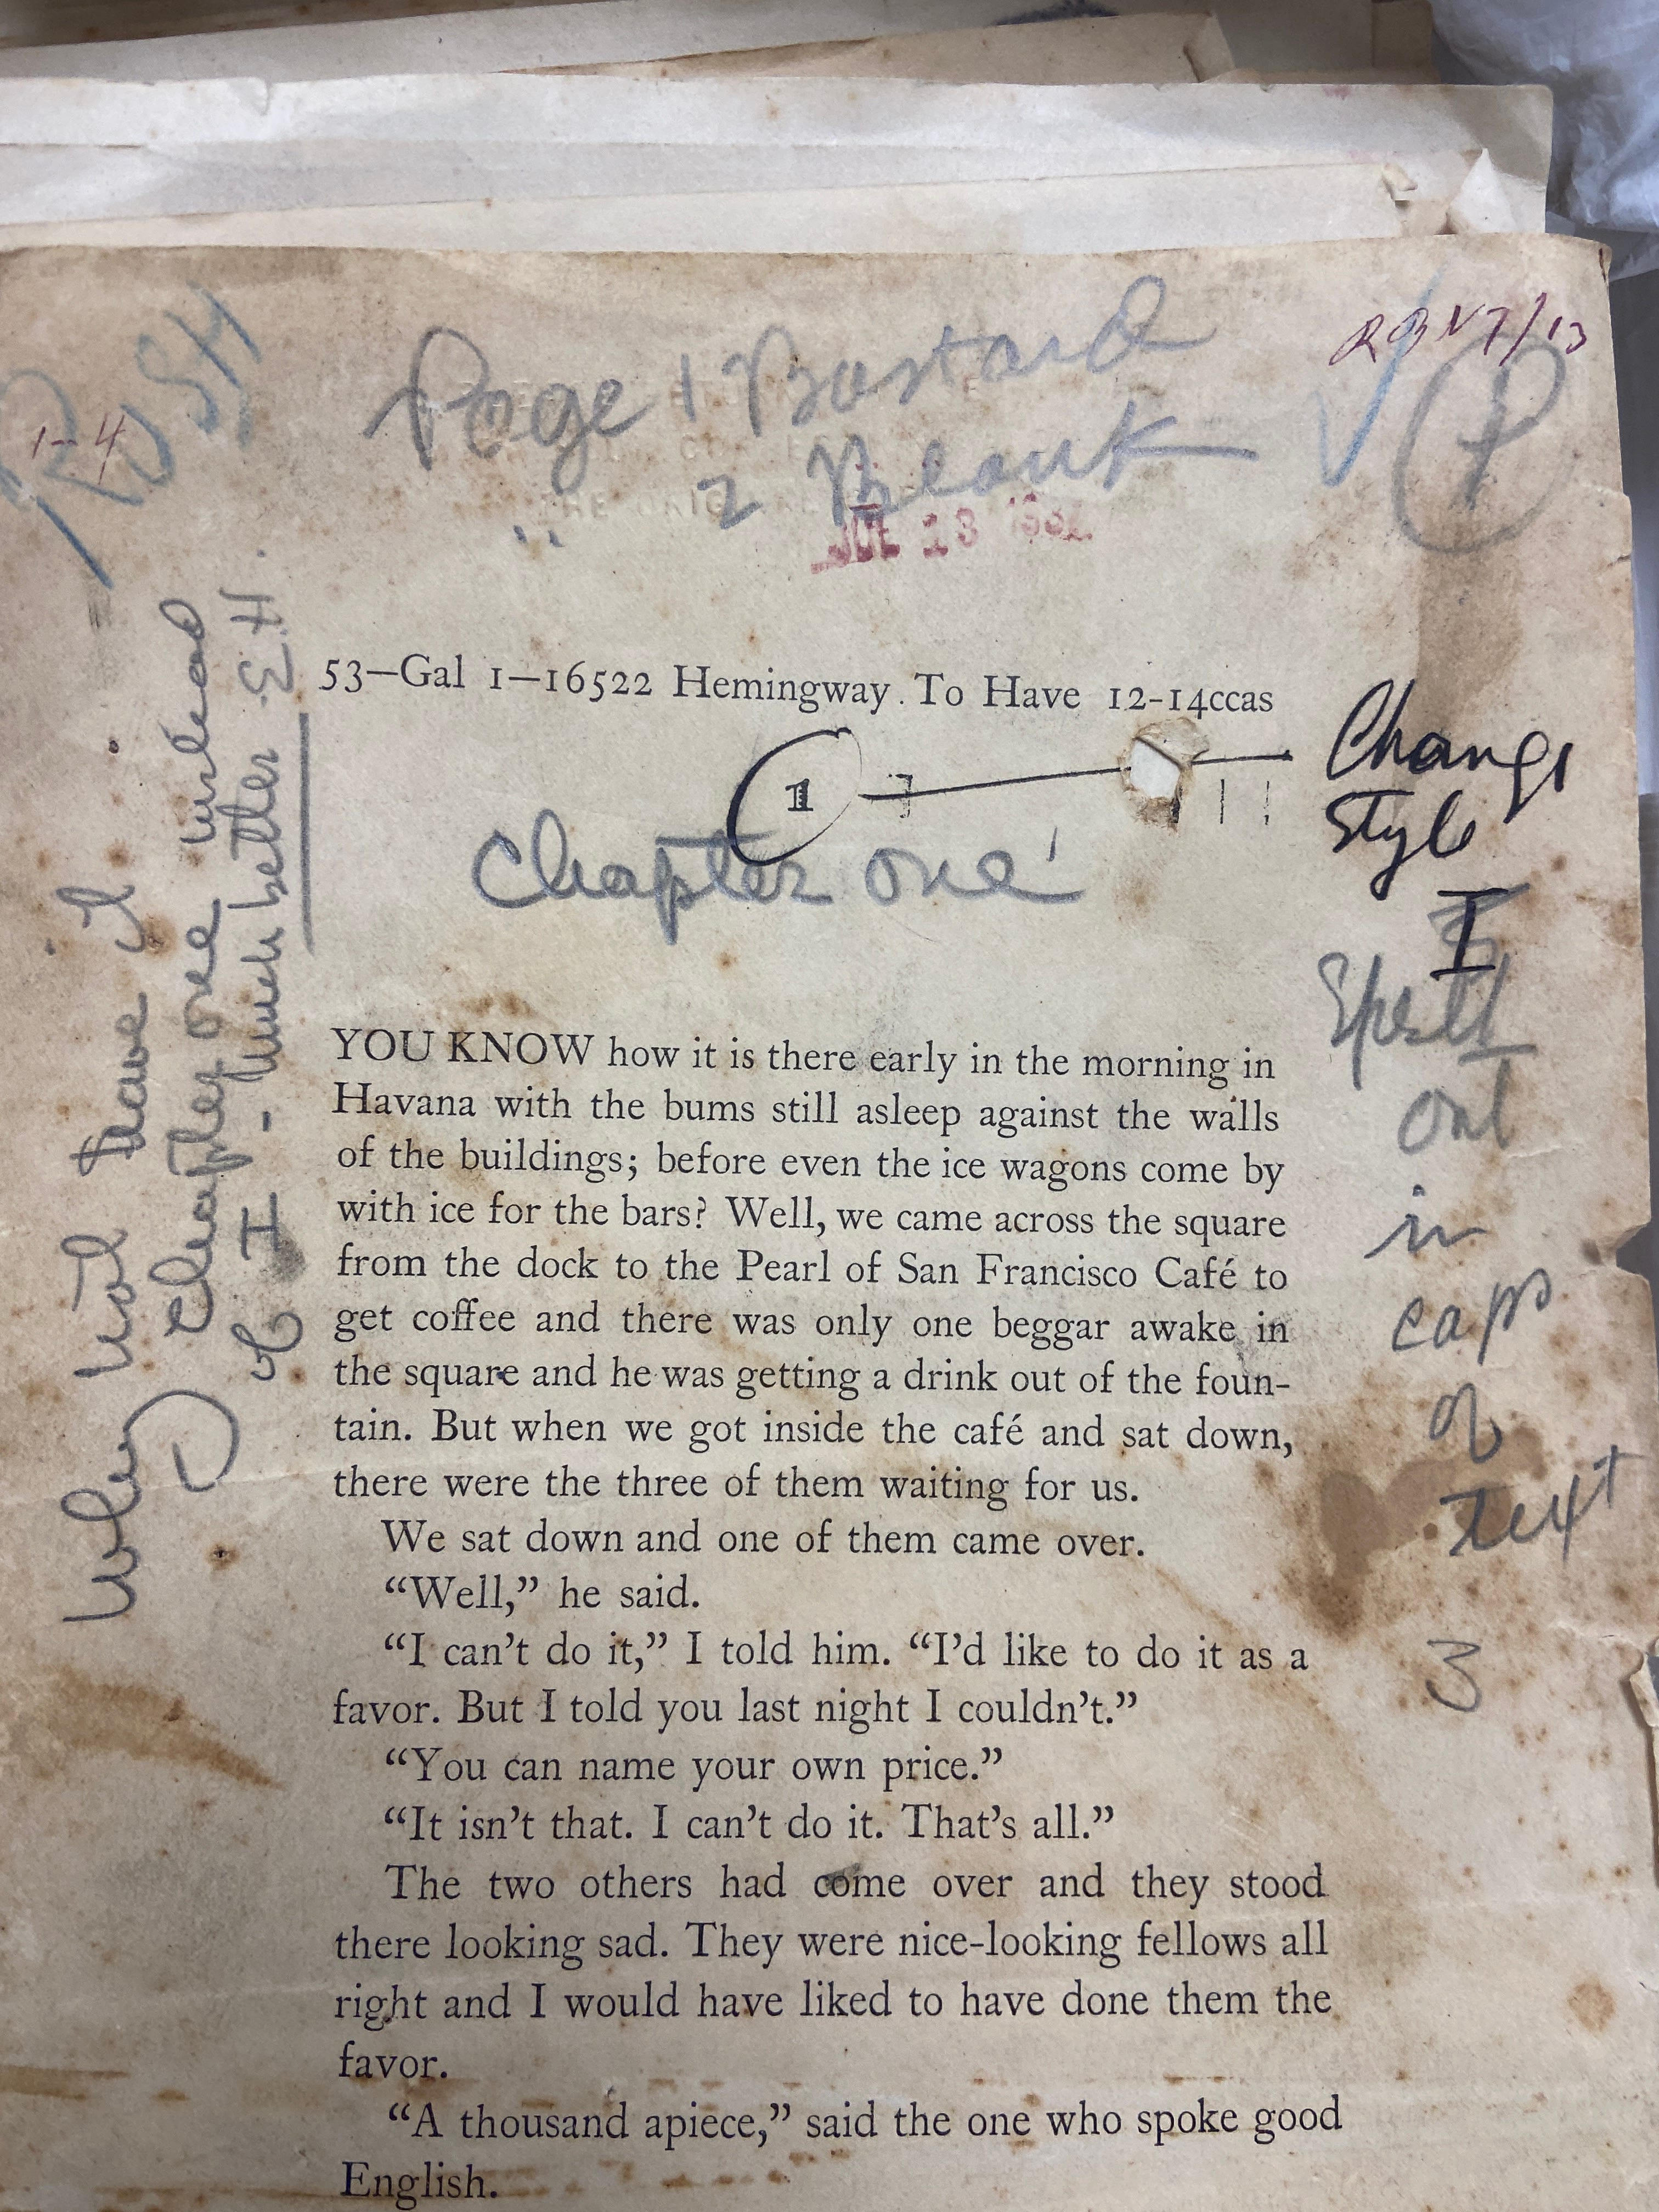 RUSH
1-4
Page 1 Bastard
" 2 Blank
JUL 13
1
53—Gal 1—16522 Hemingway. To Have 12-14ccas
1
Change
Style
I
Chapter one
Spell
out
in
caps
of
text
3
Why not have I
Chapter one instead
of I - much better E.H.
YOU KNOW how it is there early in the morning in
Havana with the bums still asleep against the walls
of the buildings; before even the ice wagons come by
with ice for the bars? Well, we came across the square
from the dock to the Pearl of San Francisco Café to
get coffee and there was only one beggar awake in
the square and he was getting a drink out of the foun-
tain. But when we got inside the café and sat down,
there were the three of them waiting for us.
We sat down and one of them came over.
“Well,” he said.
“I can’t do it,” I told him. “I’d like to do it as a
favor. But I told you last night I couldn’t.”
“You can name your own price.”
“It isn’t that. I can’t do it. That’s all.”
The two others had come over and they stood
there looking sad. They were nice-looking fellows all
right and I would have liked to have done them the
favor.
“A thousand apiece,” said the one who spoke good
English.